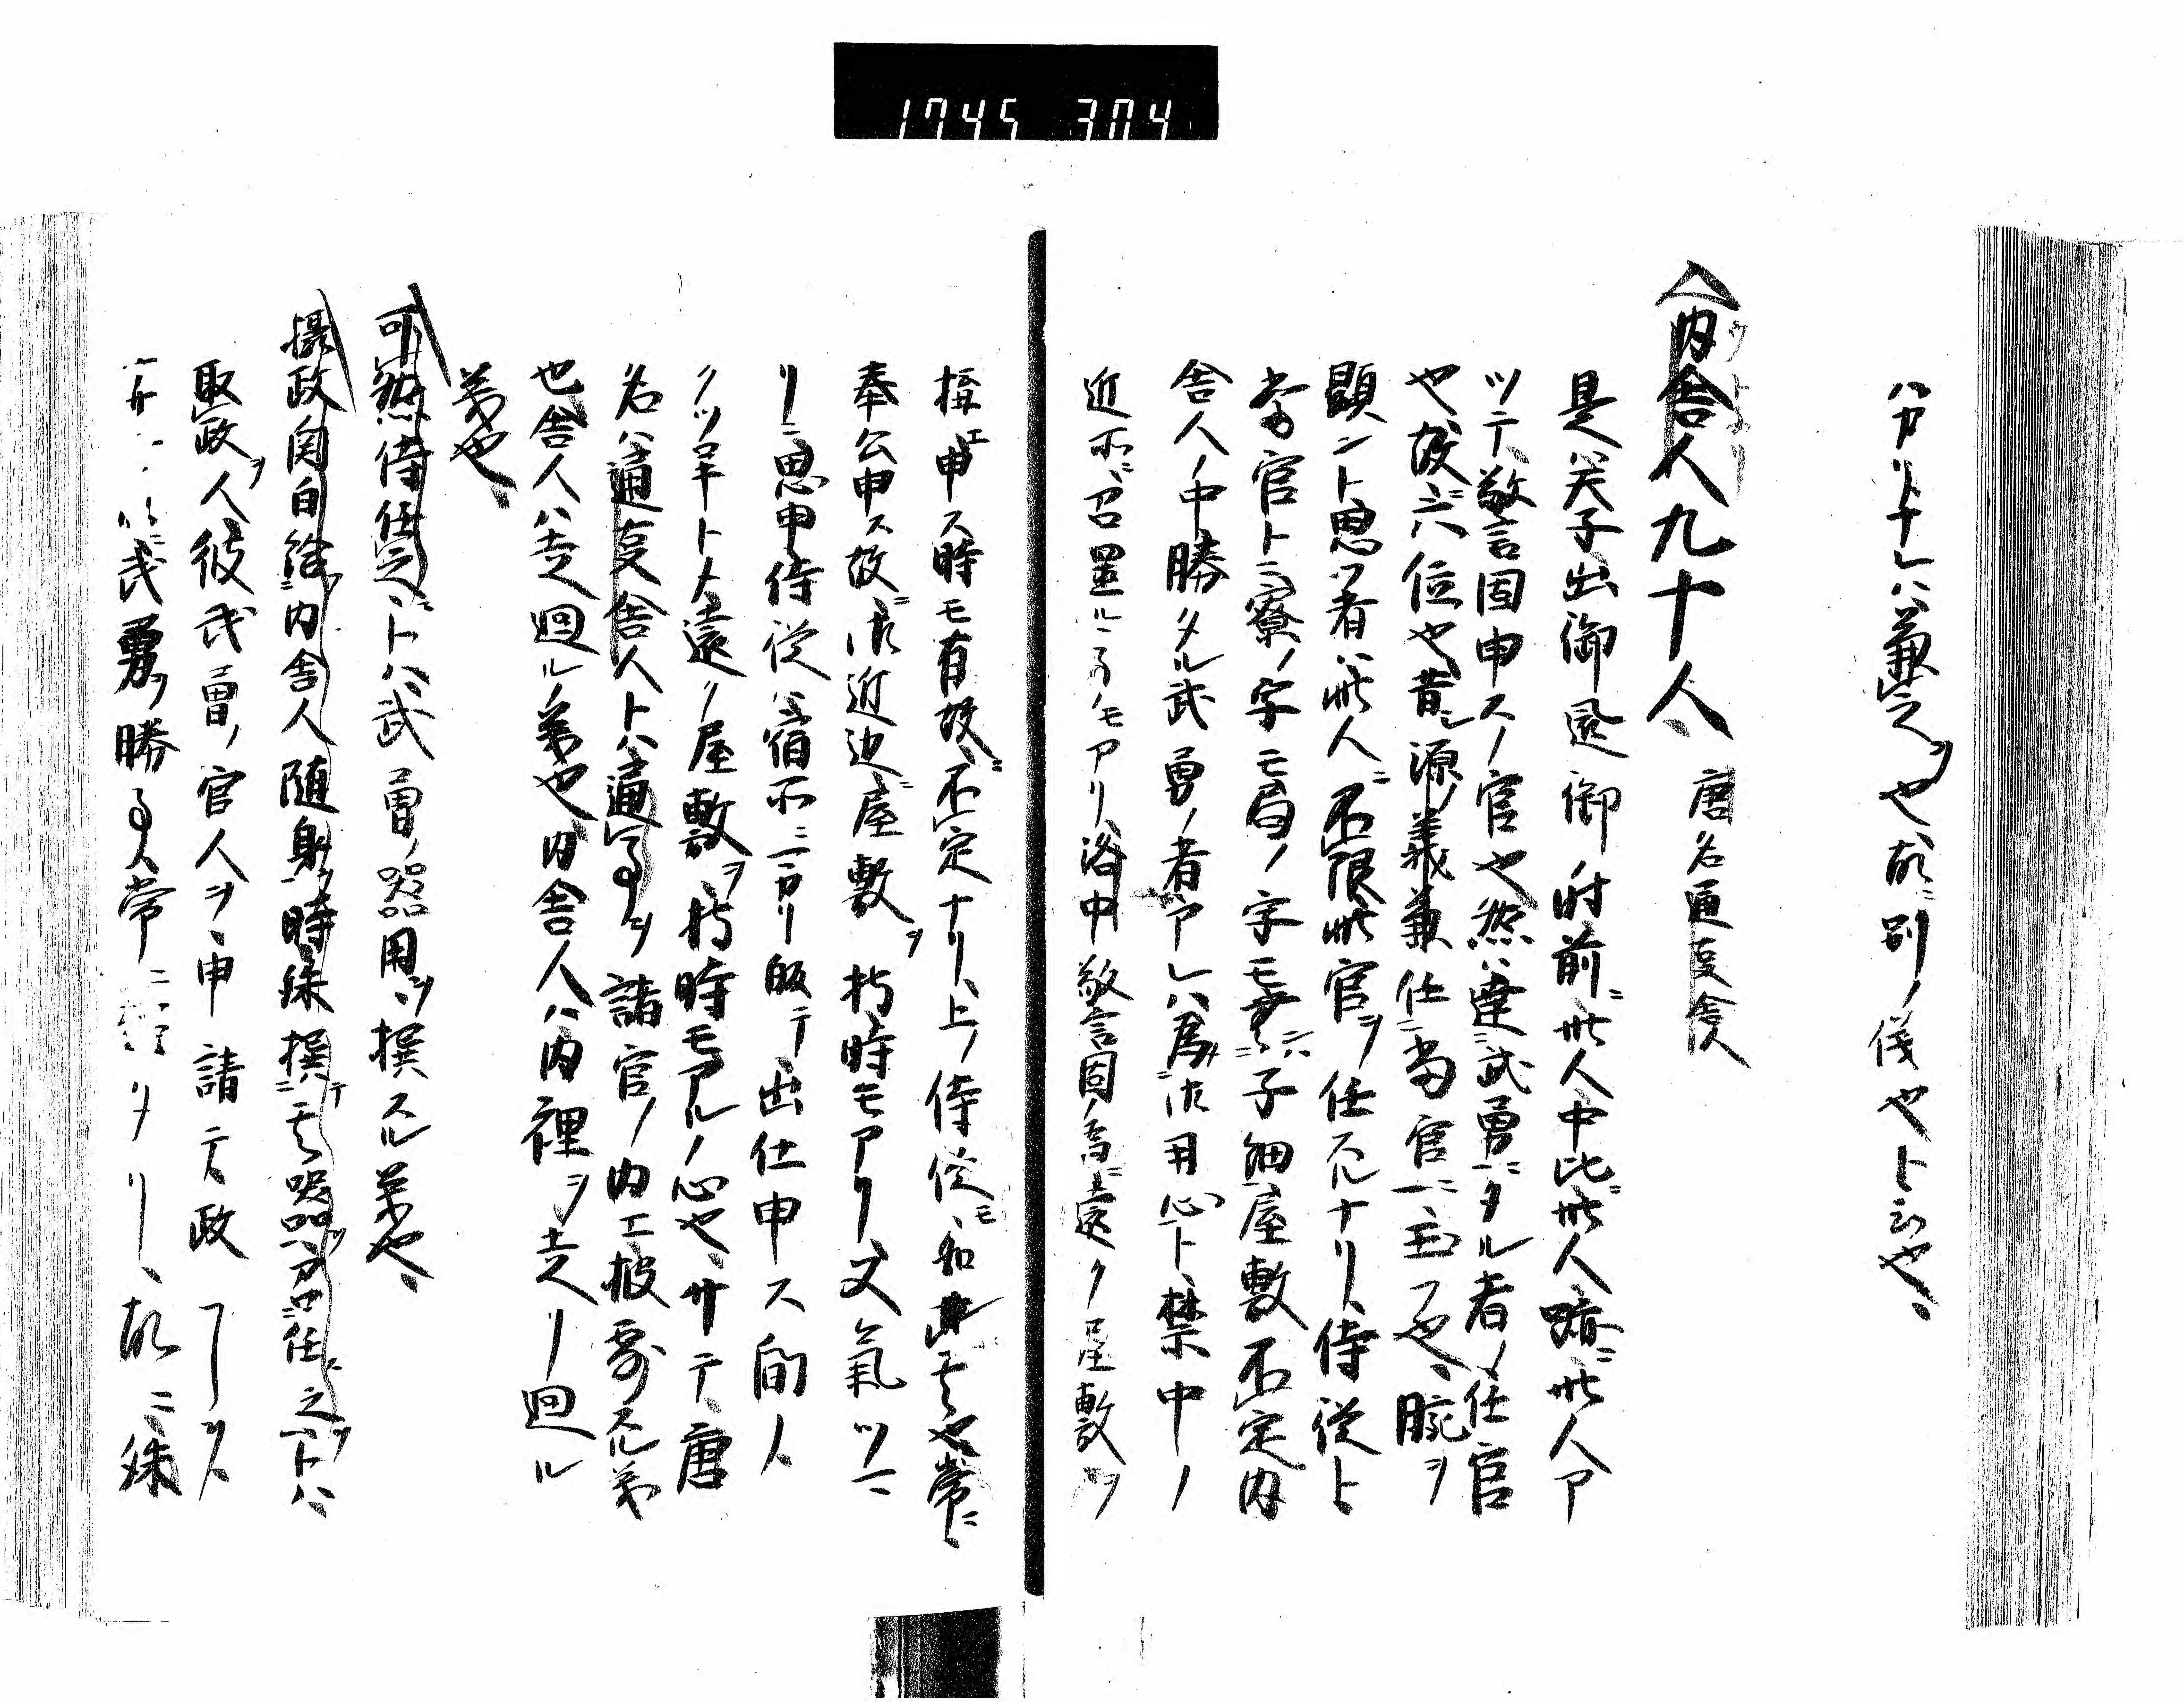 1745 304
ハカリナレハ兼之ヲ也故ニ別ノ儀也ト云也、
内舎人九十人、唐名通事舎人
是ハ天子出御還御ノ時前ニ此人中比ニ此人跡ニ此人ア
ツテ、警固申スノ官也然ハ達武勇ニタル者ノ任官
也故ニ六位也昔シ源ノ義兼任当官ニ玉フ也、腕ヲ
顕ント思フ者ハ此人ニ不限此官ヲ任スルナリ、侍従ト
当官トニ寮ノ字モ局ノ字モ無キ子細ハ屋敷不定内
舎人ノ中勝タル武勇ノ者アレハ為御用心ト禁中ノ
近所ニ召置ルヽ事モアリ、洛中警固ノ為ニ遠ク屋敷ヲ
構エ申ス時モ有故ニ不定ナリ、上ノ侍従モ如此也常ニ
奉公申ス故ニ御近辺ニ屋敷ヲ持時モアリ、又気ツマ
リニ思申侍従ハ宿所ニカリ飯テ出仕申ス間、
クツロキト〆遠ノ屋敷ヲ持時モアルノ心也、サテ唐
名ハ通事舎人トハ通事ヲ諸官ノ内エ披露スル義
也舎人ハ走廻ル義也内舎人ハ内裡ヲ走リ廻ル
義也、
可然侍任之ニトハ武勇ノ器用ヲ撰スル義也、
摂政関白給内舎人随身時殊撰其器方任之ヲトハ
取政ヲ人彼武勇ノ官人ヲ申請テ政
武勇ノ勝事常ニタリ、故ニ殊